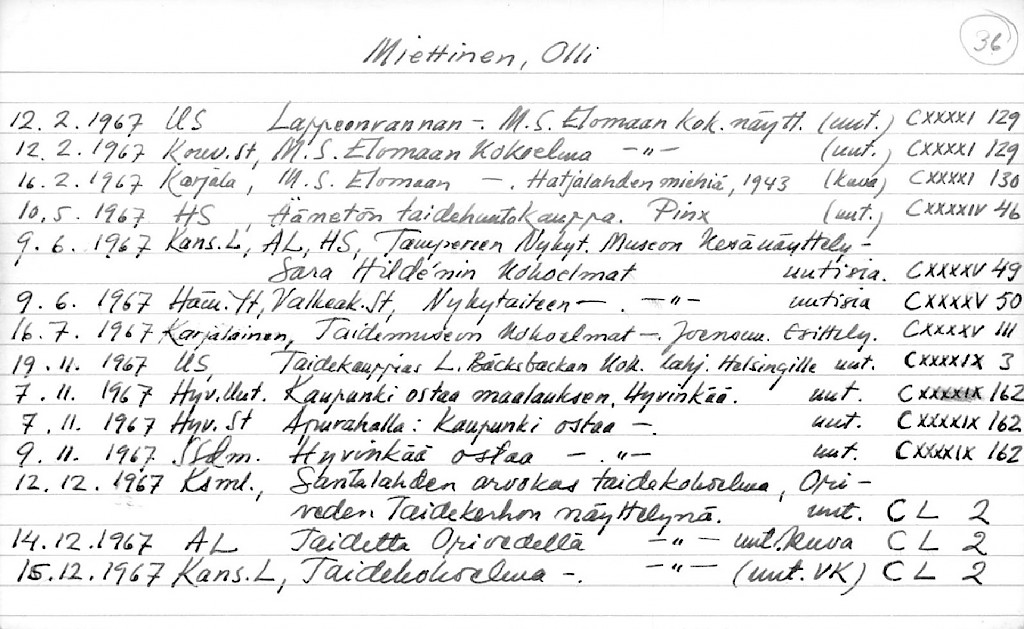 36
Miettinen, Olli
12. 2. 1967 US Lappeenrannan -. M.S. Elomaan kok. näytt. (uut.) CXXXXI 129
12. 2. 1967 Kouv. St, M.S. Elomaan kokoelma -"- (uut.) CXXXXI 129
16. 2. 1967 Karjala, M.S. Elomaan -. Hatjalahden miehiä, 1943 (kuva) CXXXXI 130
10. 5. 1967 HS Äänetön taidehuutokauppa. Pinx (uut.) CXXXXIV 46
9. 6. 1967 Kans. L, AL, HS, Tampereen Nykyt. Museon Kesänäyttely -
Sara Hildénin kokoelmat uutisia. CXXXXV 49
9. 6. 1967 Häm. St, Valkeak. St, Nykytaiteen -. -"- uutisia CXXXXV 50
16. 7. 1967 Karjalainen, Taidemuseon kokoelmat -. Joensuu. Esittely. CXXXXV 111
19. 11. 1967 US, Taidekauppias L. Bäcksbackan kok. lahj. Helsingille uut. CXXXXIX 3
7. 11. 1967 Hyv. Uut. Kaupunki ostaa maalauksen, Hyvinkää. uut. CXXXXIX 162
7. 11. 1967 Hyv. St Apurahalla: Kaupunki ostaa -. uut. CXXXXIX 162
9. 11. 1967 SSdm. Hyvinkää ostaa -. -"- uut. CXXXXIX 162
12. 12. 1967 Ksml., Santalahden arvokas taidekokoelma, Ori-
veden Taidekerhon näyttelynä. uut. CL 2
14. 12. 1967 AL Taidetta Orivedellä -"- uut. kuva CL 2
15. 12. 1967 Kans. L, Taidekokoelma -. -"- (uut. VK) CL 2